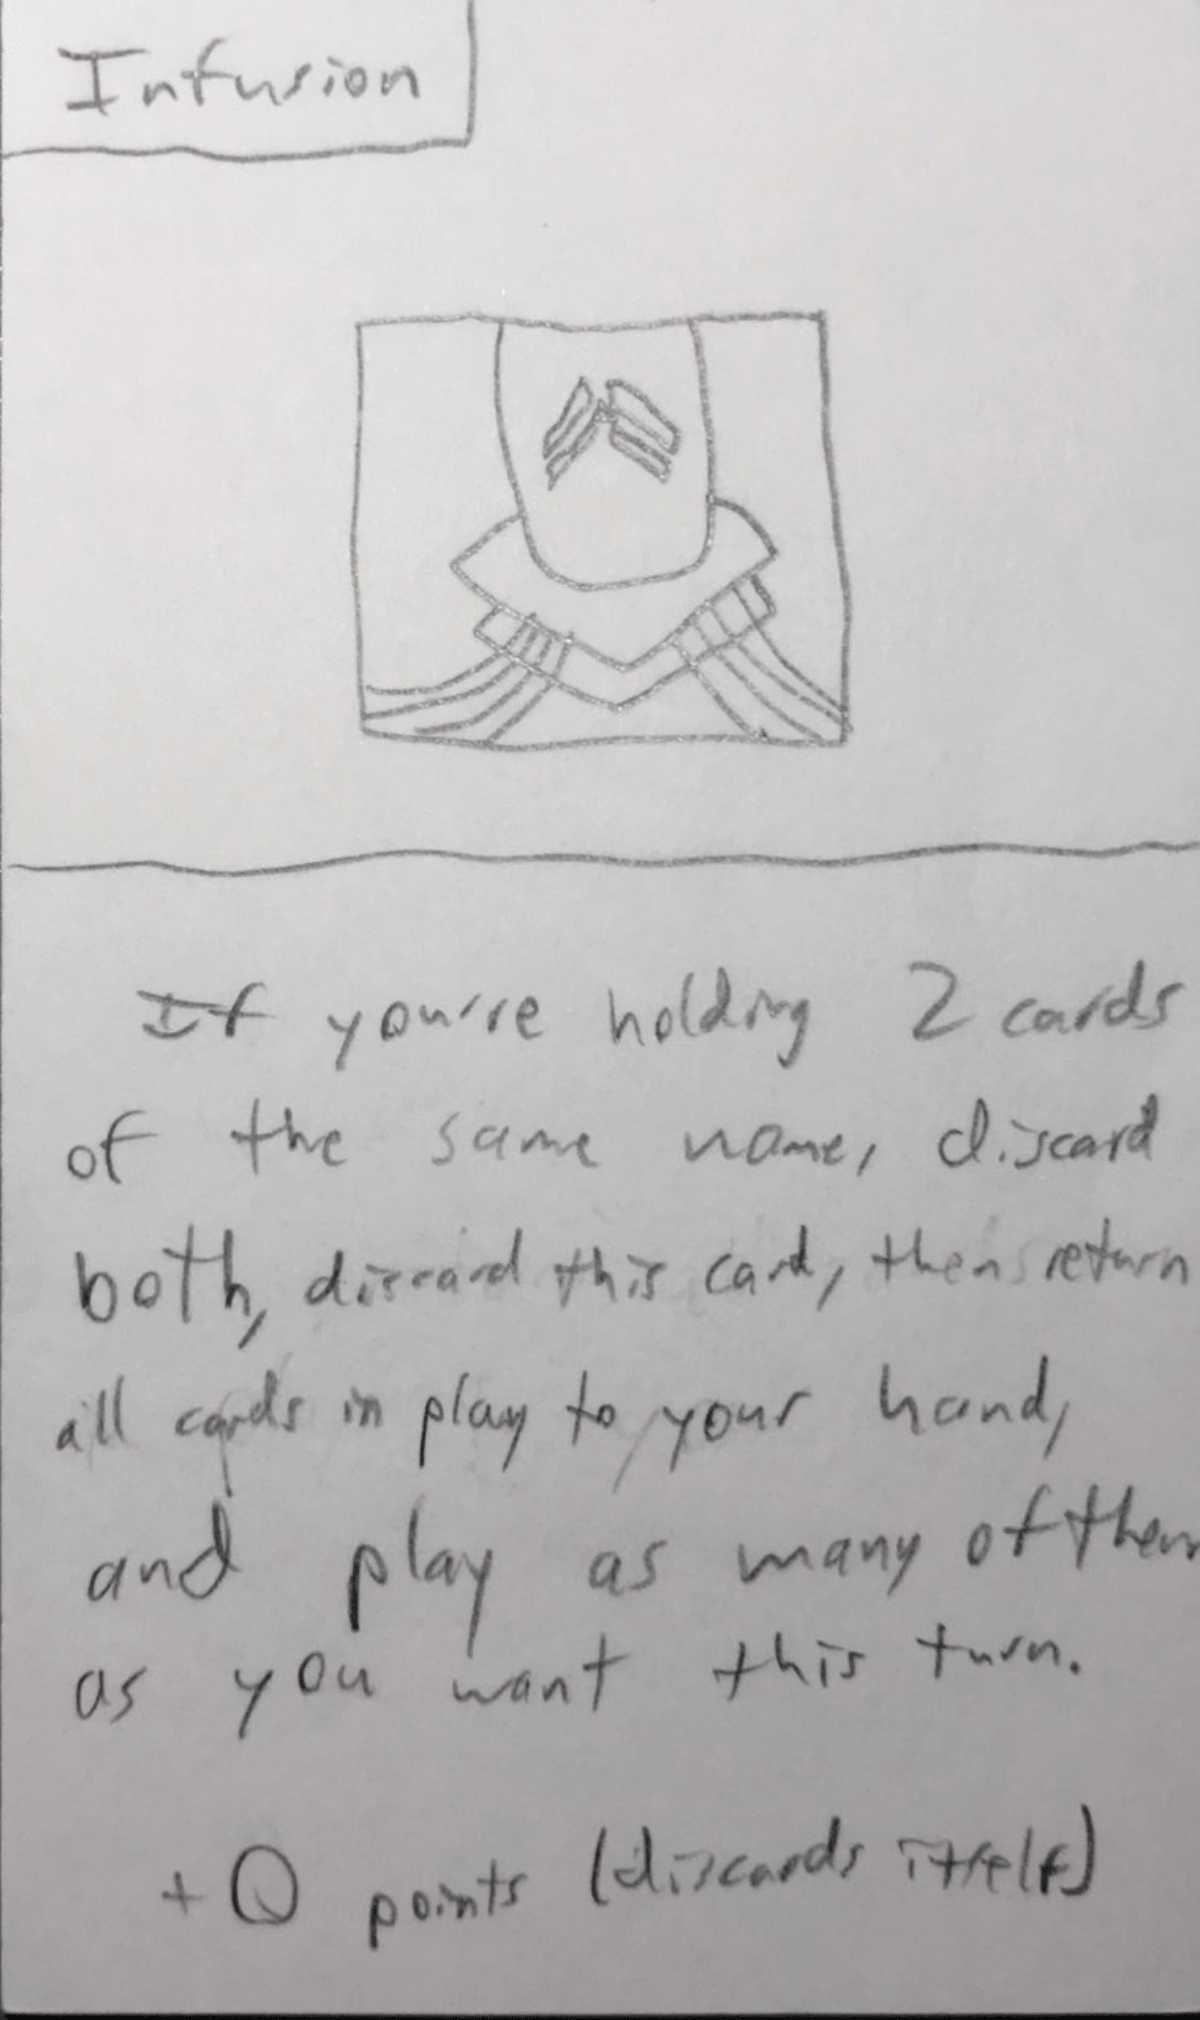 Infusion
If you're holding 2 cards
of the same name, discard
both, discard this card, then return
all cards in play to your hand,
and play as many of them
as you want this turn.
+0 points (discards itself)